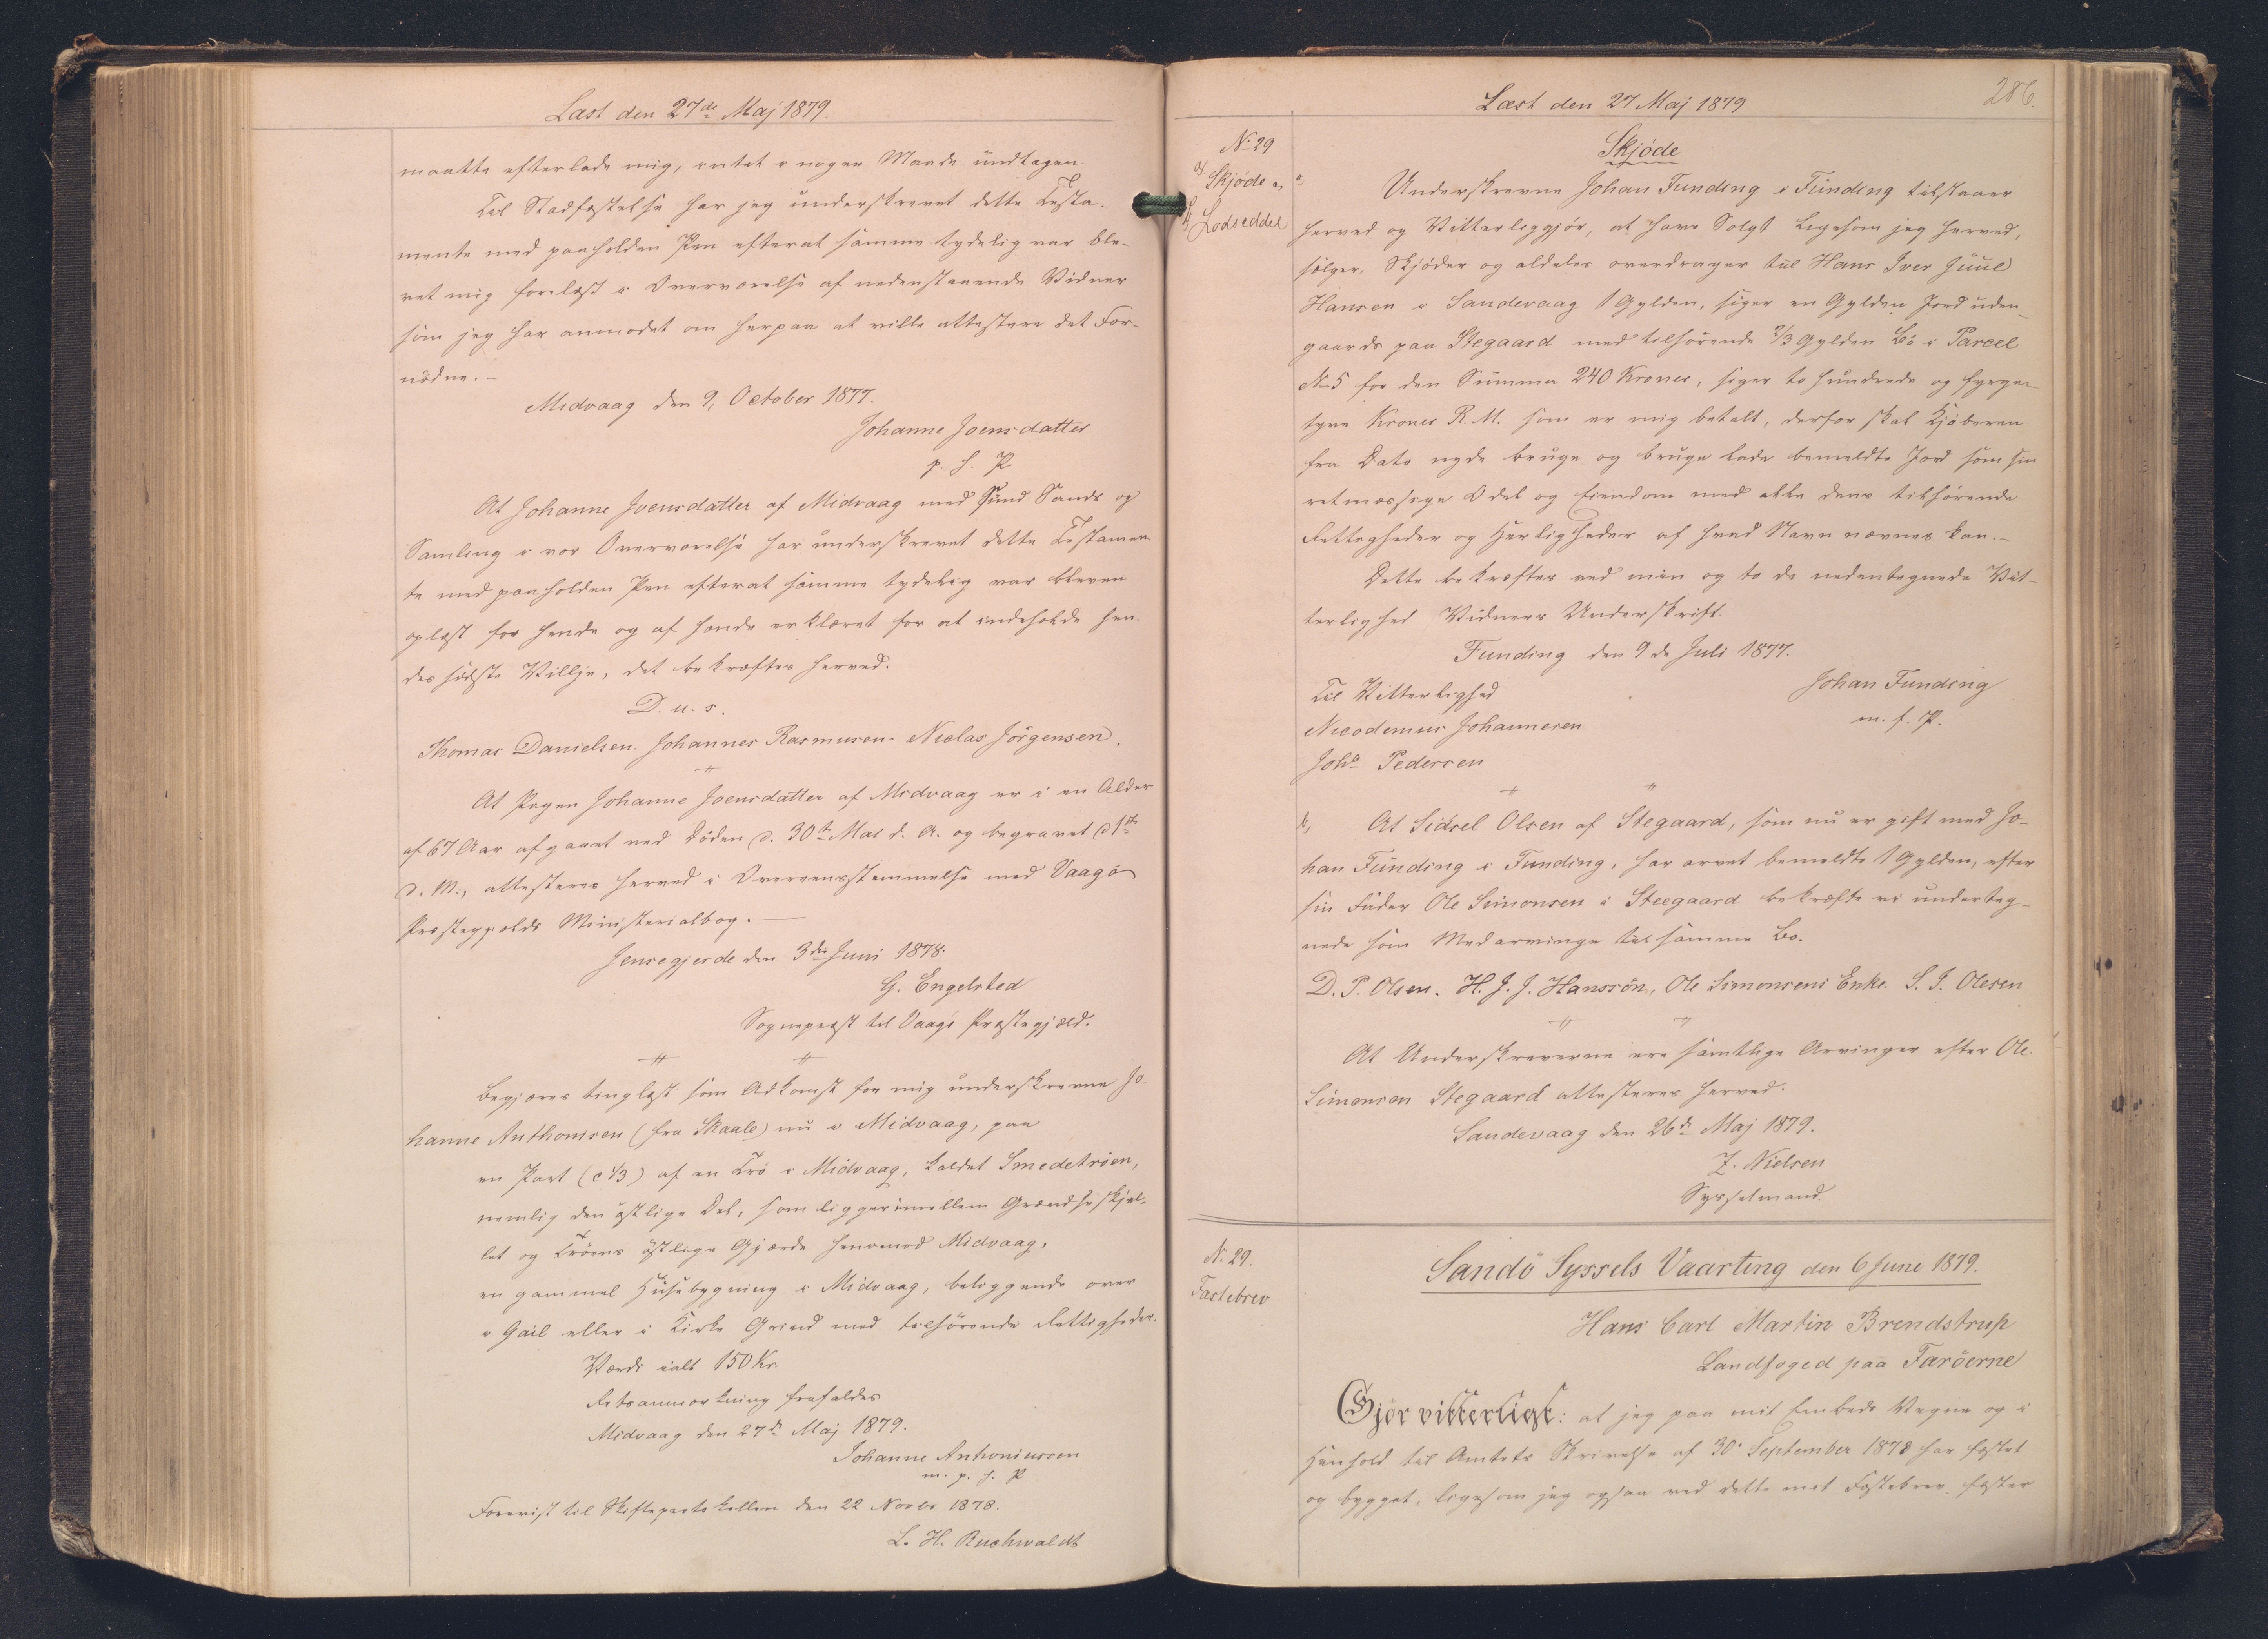 Læst den 27de Maj 1879.
maatte efterlade mig, intet i nogen Maade undtagen.
Til Stadfæstelse har jeg underskrevet dette Testa-
mente med paaholden Pen efterat samme tydelig var ble-
vet mig forelæst i Overværelse af nedenstaaende Vidner
som jeg har anmodet om herpaa at ville attestere det For-
nødne.-
Midvaag den 9, October 1877.
Johanne Joensdatter
p. h. P
At Johanne Joensdatter af Midvaag med Sund Sands og
Samling i vor Overværelse har underskrevet dette Testamen-
te med paaholden Pen efterat samme tydelig var bleven
oplæst for hende og af hende erklæret for at indeholde hen-
des sidste Villje, det bekræftes herved.
D. u. s.
Thomas Danielsen. Johannes Rasmusen. Niclas Jörgensen.
At Pigen Johanne Joensdatter af Midvaag er i en Alder
af 67 Aar afgaaet ved Døden d. 30te Mai d. A. og begravet d 1ste
d. M., attesteres herved i Overensstemmelse med Vaagø
Præstegjælds Ministerialbog. —
Jensegjerde den 3die Juni 1878.
G. Engelsted
Sognepræst til Vaagø Præstegjæld.
Begjæres tinglæst som Adkomst for mig underskrevne Jo-
hanne Anthonisen (fra Skaale) nu i Midvaag, paa
en Part (c 1/3) af en Trø i Midvaag, kaldet Smedetrøen,
nemlig den østlige Del, som ligger imellem Grændseskjel-
let og Trøens østlige Gjærde henimod Midvaag,
en gammel Husebygning i Midvaag, beliggende over
i Gail eller i Kirke Grind med tilhørende Rettigheder.
Værdi ialt 150 Kr.
Retsanmærkning frafaldes
Midvaag den 27de Maj 1879.
Johanne Anthoniussen
m. p. h. P
Forevist til Skifteprotokollen den 22 Novbr 1878.
L. H. Buchwaldt
286.
Læst den 27 Maj 1879
No 29
a, Skjöde og
b, Lodseddel
Skjöde
a, Underskrevne Johan Funding i Funding tilstaaer
herved og Vitterliggjør, at have Solgt ligesom jeg herved,
sølger, Skjøder og aldeles overdrager til Hans Iver Juul
Hansen i Sandevaag 1 Gylden, siger en Gylden Jord uden-
gaards paa Stegaard med tilhørende 2/3 Gylden Bø i Parcel
No 5 for den Summa 240 Kroner, siger to hundrede og fyrge-
tyve Kroner R. M. som er mig betalt, derfor skal Kjøberen
fra Dato nyde bruge og bruge lade bemeldte Jord som sin
retmæssige Odel og Eiendom med alle dens tilhørende
Rettigheder og Herligheder af hvad Navn nævnes kan.-
Dette bekræfter ved min og to de nedentegnede Vit-
terlighed Vidners Underskrift.
Funding den 9de Juli 1877.
Til Vitterlighed
Johan Funding
m. f. P.
Nicodemus Johannesen
Johs Pedersen
b, At Sidsel Olsen af Stegaard, som nu er gift med Jo-
han Funding i Funding, har arvet bemeldte 1 Gylden, efter
sin Fader Ole Simonsen i Steegaard bekræfte vi underteg-
nede som Medarvinge til samme Bo.
D. P. Olsen. H. J. J. Hanssön, Ole Simonsens Enke. S. J. Olesen
At Underskriverne ere samtlige Arvinger efter Ole
Simonsen Stegaard attesteres herved.
Sandevaag den 26de Maj 1879.
Z. Nielsen
Sysselmand.
Sandö Syssels Vaarting den 6 June 1879.
No 29.
Fæstebrev
Hans Carl Martin Brendstrup
Landfoged paa Færöerne
Gjör vitterligt: at jeg paa mit Embeds Vegne og i
Henhold til Amtets Skrivelse af 30' September 1878 har fæstet
og bygget, ligesom jeg ogsaa ved dette mit Fæstebrev fæster